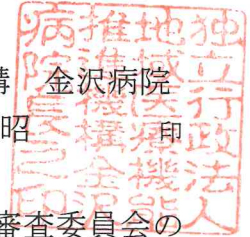 構 金沢病院
昭 印
審査委員会の
独立行政法人
地域医療機能
推進機構金沢
病院長之印